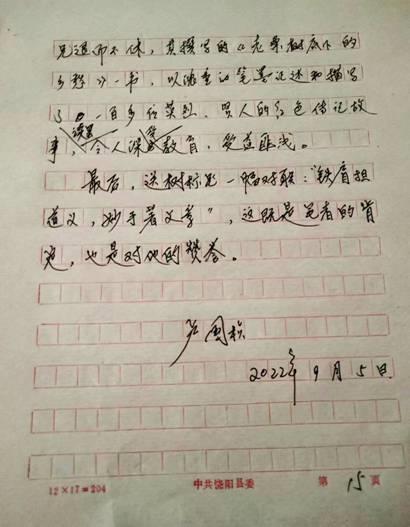 兄退而不休，其撰写的《老枣树底下的
乡愁》一书，以浓重的笔墨记述和描写
了一百多位英烈、贤人的红色传记故
事，令人深受教育，受益匪浅。
最后，送树标兄一幅对联："铁肩担
道义，妙手著文章"，这既是笔者的肯
定，也是对他的赞誉。
国
2022年9月5日
12×17=204 中共饶阳县委 第15页